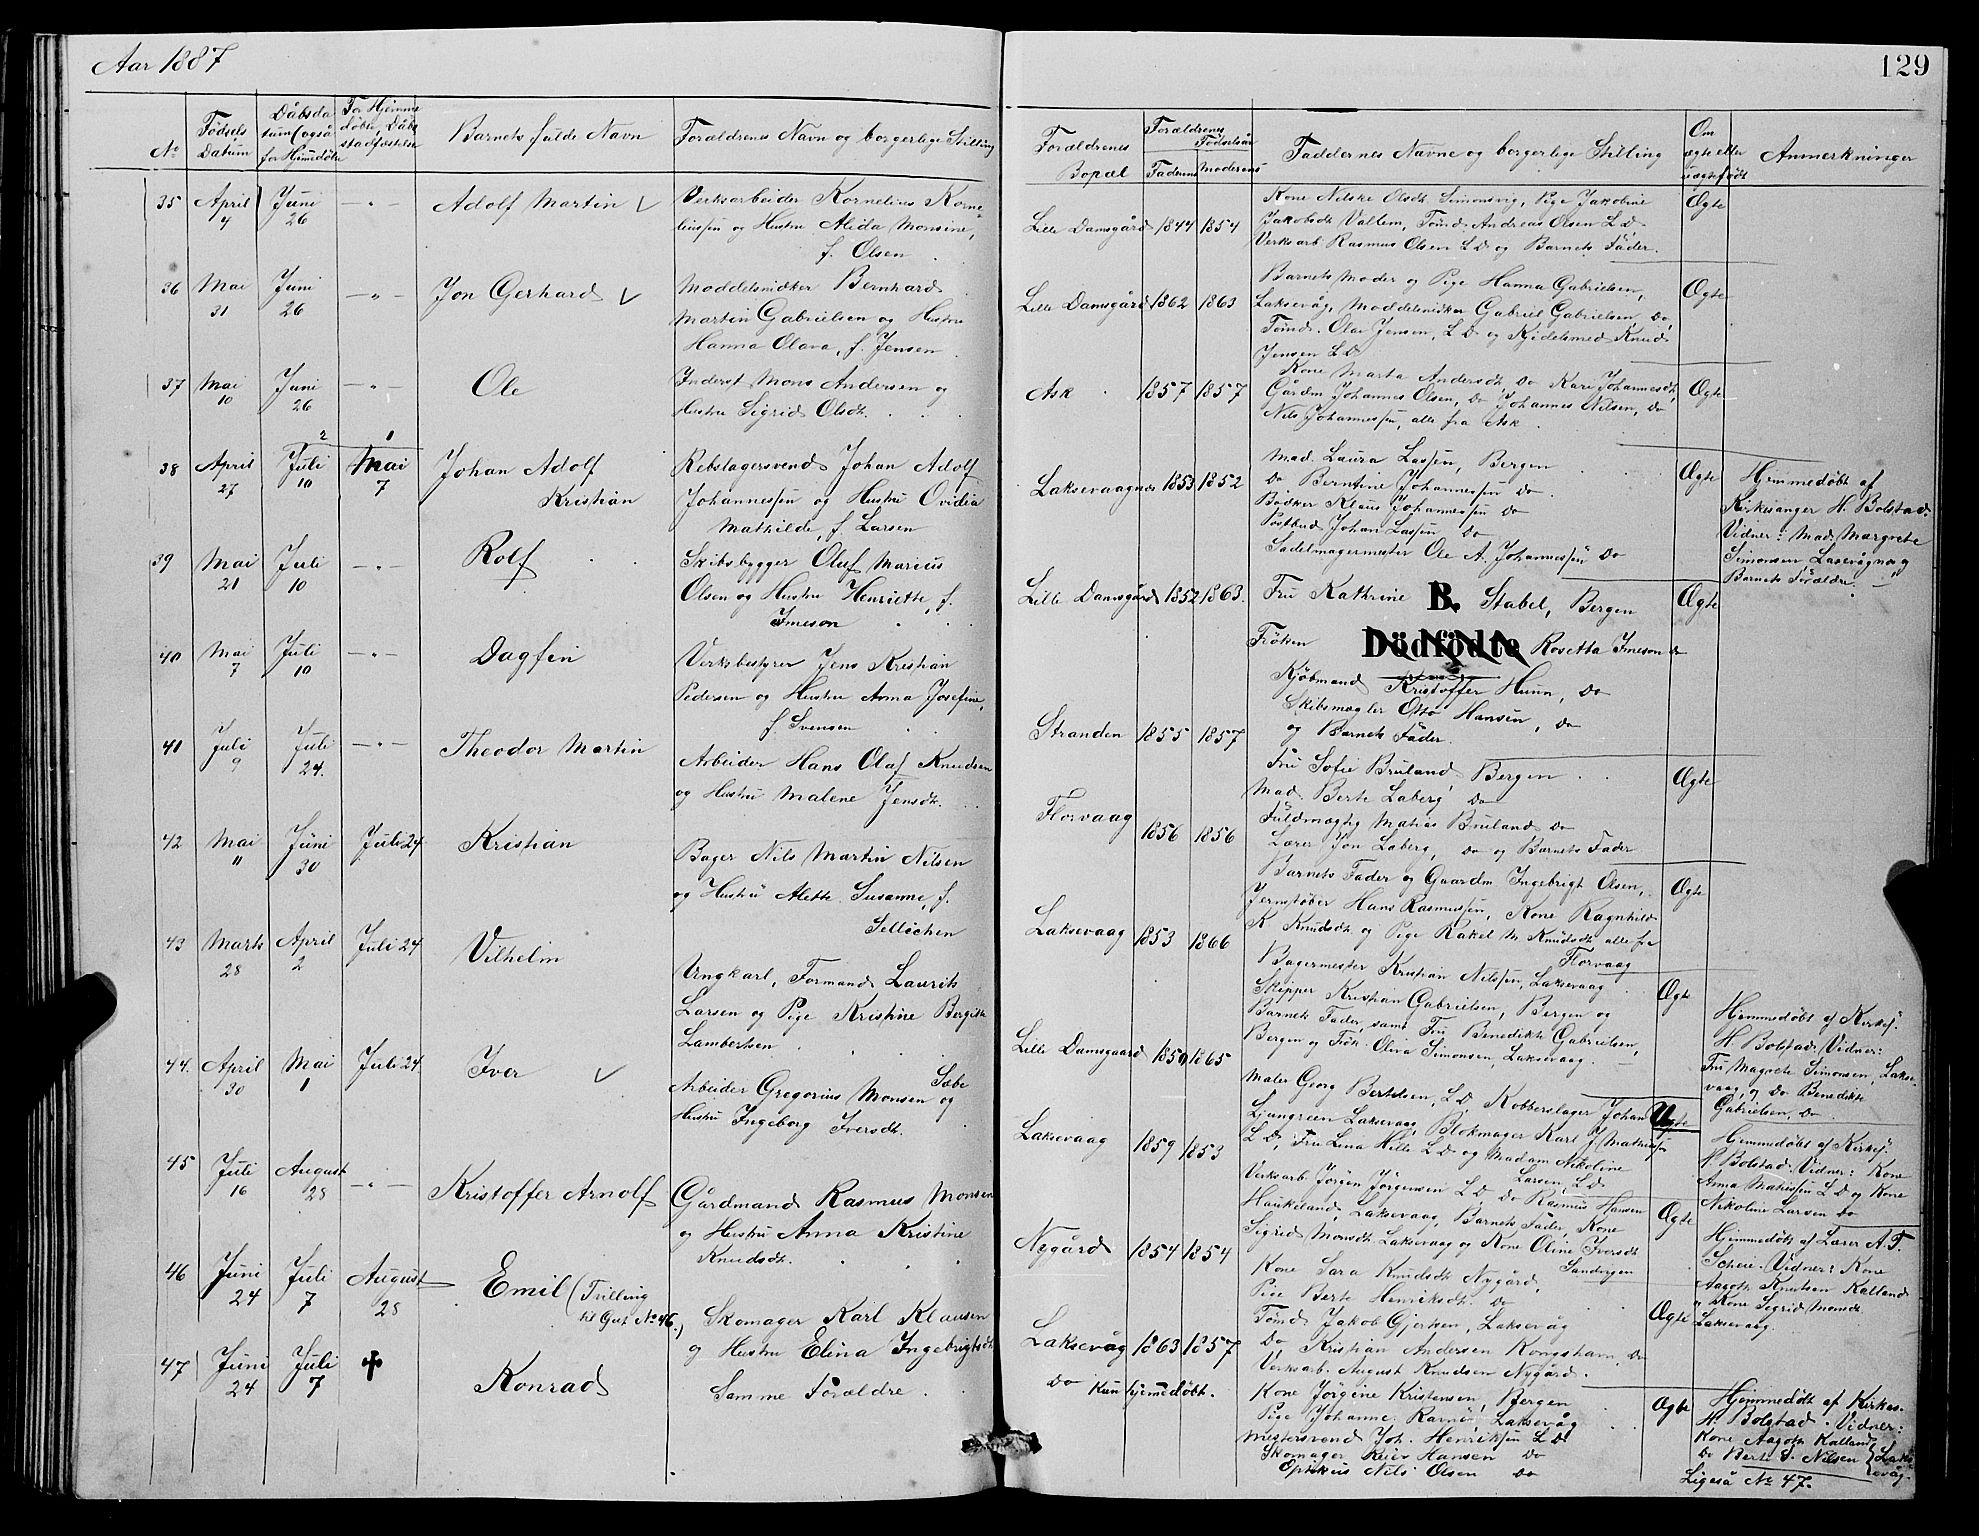 Aar 1887
No
Fødsels Datum
Dåbsdatum (også for Hjmedøbte
For Hjemmedøbte, Dåbsstadfæstelse
Barnets fulde Navn
Forældrenes Navn og borgerlige Stilling
35 April 4 Juni 26 -"- Adolf Martin Verksarbeider Kornelius Korne-
liussen og Hustru Alida Monsine,
f. Olsen
36 Mai 31 Juni 26 -"- Jon Gerhard Moddelsnidker Bernhard
Martin Gabrielsen og Hustru
Hanna Olava, f. Jensen
37 Mai 10 Juni 26 -"- Ole Inderst Mons Andersen og
Hustru Sigrid Olsdt.
2 1
38 April 27 Juli 10 Mai 7 Johan Adolf Kristian Rebslagersvend Johan Adolf
Johannessen og Hustru Ovidia
Mathilde, f. Larsen
39 Mai 21 Juli 10 -"- Rolf Skibsbygger Oluf Marius
Olsen og Hustru Henriette, f.
Imeson
40 Mai 7 Juli 10 -"- Dagfin Verksbestyrer Jens Kristian
Pedersen og Hustru Anna Josefine,
f. Svensen
41 Juli 9 Juli 24. -"- Theodor Martin Arbeider Hans Olaf Knudsen
og Hustru Malene Jensdt.
42 Mai 11 Juni 30 Juli 24 Kristian Bager Nils Martin Nilsen
og Hustru Alette Susanne, f.
Selløchen
43 Marts 28 April 2 Juli 24 Vilhelm Ungkarl, Formand Laurits
Larsen og Pige Kristine Bergitte
Lambertsen
44. April 30 Mai 1 Juli 24 Iver Sæbe
Arbeider Gregorius Monsen og
Hustru Ingeborg Iversdt.
45 Juli 16 August 28 -"- Kristoffer Arnolf Gårdmand Rasmus Monsen
og Hustru Anna Kristine
Knudsdt.
46 Juni 24 Juli 7 August 28 Emil (Tvilling
til Gut No 46., Skomager Karl Klausen
og Hustru Elina Ingebrigtsdt
47 Juni 24 Juli 7 ✝ Konrad Samme Forældre
129
Forældrenes Bopæl
Forældrenes Fødselsår
Faderens Moderens
Faddernes Navne og borgerlige Stilling
Om ægte eller uægte født
Anmerkninger
Lille Damsgård 1844 1854
Kone Nilske Olsdt Simonsvig, Pige Jakobine
Jakobsdt Vallem, Tømd. Andreas Olsen L D
Verksarb Rasmus Olsen L D og Barnets Fader.
Ægte
Lille Damsgård 1862 1863
Barnets Moder og Pige Hanna Gabrielsen,
Laksevåg, Moddelsnidker Gabriel Gabrielsen, do,
Tømd. Olai Jensen, L D og Kjedelsmed Knud
Jensen L D
Ægte
Ask 1857 1857
Kone Marta Andersdt, do Kari Johannesdt,
Gårdm Johannes Olsen, do Johannes Nilsen, do
Nils Johannessen, alle fra Ask
Ægte
Laksevaagnes 1853 1852
Mad. Laura Lassen, Bergen
do Berntine Johannessen do
Bødker Klaus Johannessen do
Postbud Johan Lassen do
Sadelmagermester Ole A. Johannessen do
Ægte
Hjemmedøbt af
Kirkesanger H. Bolstad.
Vidner: Mad. Margrete
Simonsen Laxevågnæs og
Barnets Forældre.
Lille Damsgård 1852 1863.
Fru Kathrine B. Stabel, Bergen
Frøken Dödfödte Rosetta Imeson do
Kjøbmand Kristoffer Hunn, do
Skibsmægler Otto Hansen, do
og Barnets Fader.
Ægte
Stranden 1855 1857
Fru Sofie Bruland, Bergen
Mad. Berte Laberg do
Fuldmægtig Matias Bruland do
Lærer Jon Laberg, do og Barnets Fader
Ægte
Florvaag 1856 1856
Barnets Fader og Gaardm Ingebrigt Olsen,
Jernstøber Hans Rasmussen, Kone Ragnhild
K Knudsdt og Pige Rakel M. Knudsdt alle fra
Florvaag
Ægte
Laksevaag 1853 1866
Bagermester Kristian Nilssen, Laksevaag
Skipper Kristian Gabrielsen, Bergen og
Barnets Fader, samt Fru Benedikte Gabrielsen,
Bergen og Frøk. Oliva Simonsen, Laksevaag.
Ægte
Hjemmedøbt af Kirkesj.
H. Bolstad. Vidner:
Fru Magrete Simonsen, Lakse-
vaag, og do Benedikte
Gabrielsen, do
Lille Damsgaard 1859 1865
Maler Georg Bertelsen, L D, Kobberslager Johan
Ljungreen Laksevaag, Blokmager Karl J Mathissen
L D, Fru Lina Hille L D og Madam Nikoline
Larsen, L D
Uægte
Hjemmedøbt af Kirkesj.
H. Bolstad. Vidner: Kone
Anna Matissen L D og Kone
Nikoline Larsen do
Laksevaag 1859 1853
Verksarb Jørgen Jørgensen L D do Rasmus Hansen
Haukeland, Laksevaag, Barnets Fader, Kone
Sigrid Monsdt Laksevaag og Kone Oline Iversdt
Sandvigen
Ægte
Hjemmedøbt af Lærer A. T.
Scheie. Vidner: Kone
Aagoth Knutsen Kalland
" Kone Sigrid Monsdt
Laksevaag.
Nygård 1854 1854
Kone Sara Knudsdt Nygård,
Pige Berte Henriksdt. do
Tømd Jakob Gjertsen, Laksevåg
do Kristian Andersen Kongshavn, do
Verksarb. August Knudsen Nygård.
Ægte
Laksevåg 1863 1857
do Kun hjemedøbt.
Kone Jørgine Kristensen, Bergen
Pige Johanne Laksevåg
Mestersvend Joh. Henriksen L D
Skomager Hansen do
Nils Olsen do
Ægte
Hjemmedøbt af Kirkes.
H. Bolstad. Vidner:
Kone Aagoth Kalland
do Berte S. Nilsen } Laksevåg.
Ligeså No 47.